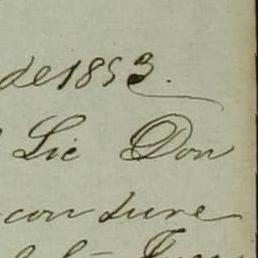 de 1853.
Lic Don
con dure